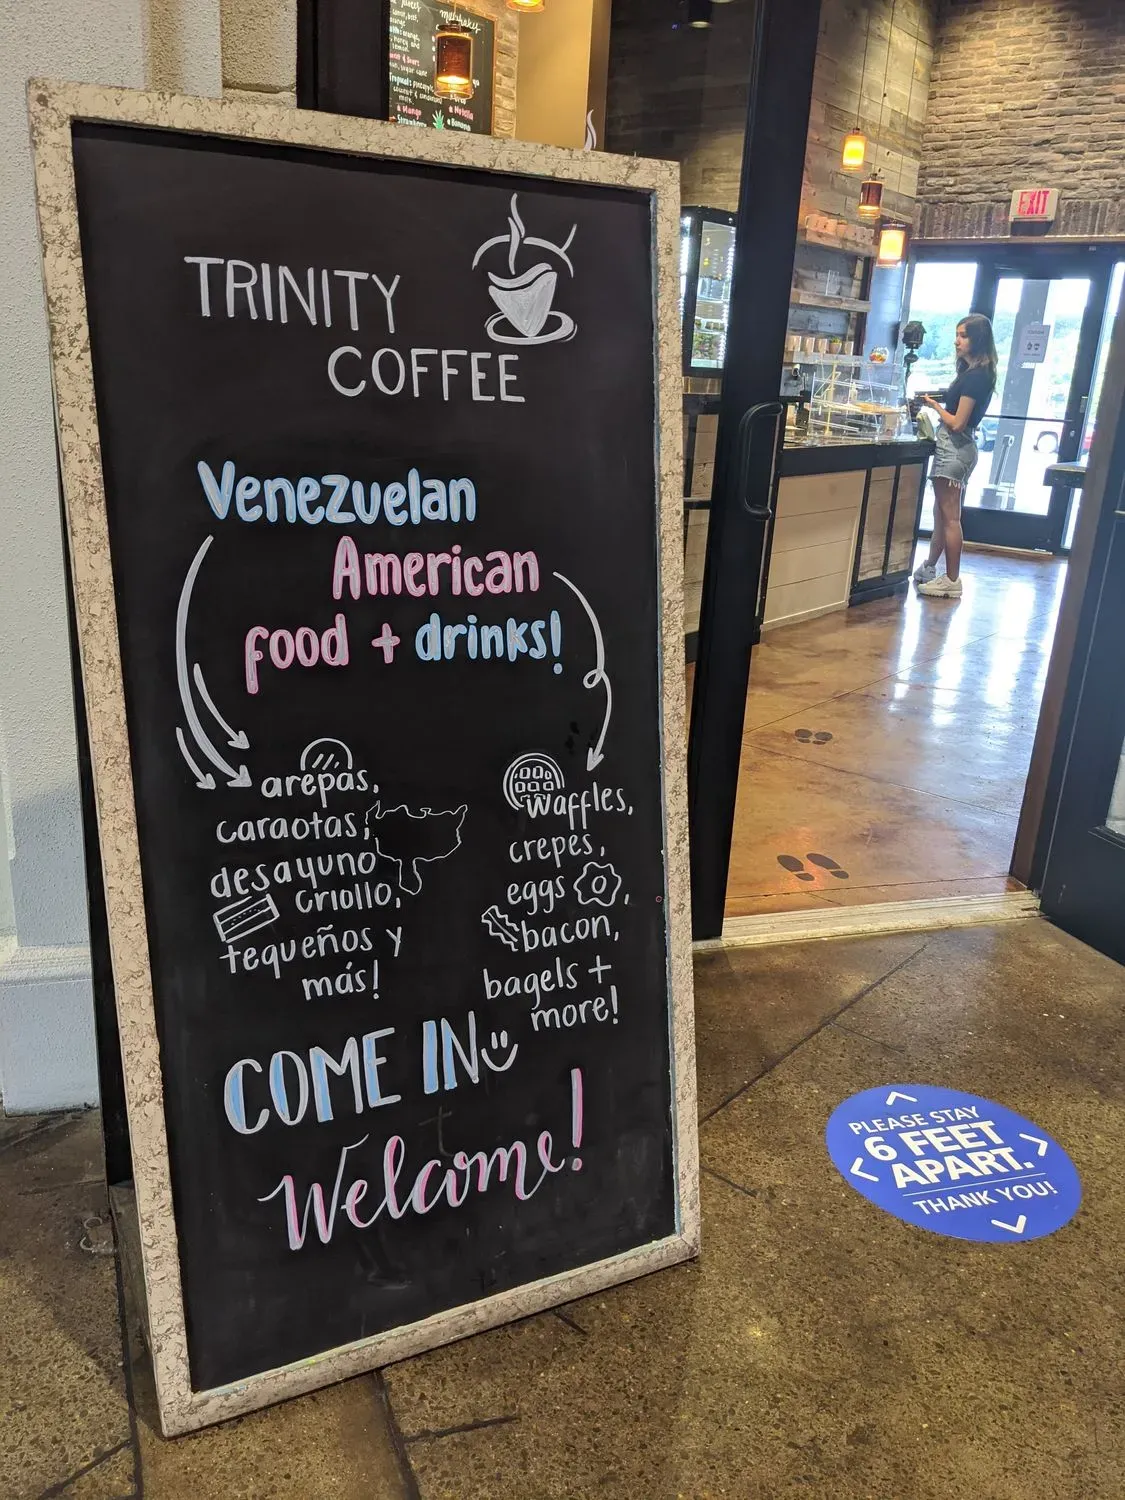 milkshakes
honey and
lemon.
Strawberry
a Nutella
a Banana
EXIT
TRINITY
COFFEE
Venezuelan
American
food + drinks!
arepas,
caraotas,
desayuno
criollo,
tequeños y
más!
waffles,
crepes,
eggs ,
bacon,
bagels +
more!
COME IN
Welcome!
PLEASE STAY
6 FEET
APART.
THANK YOU!